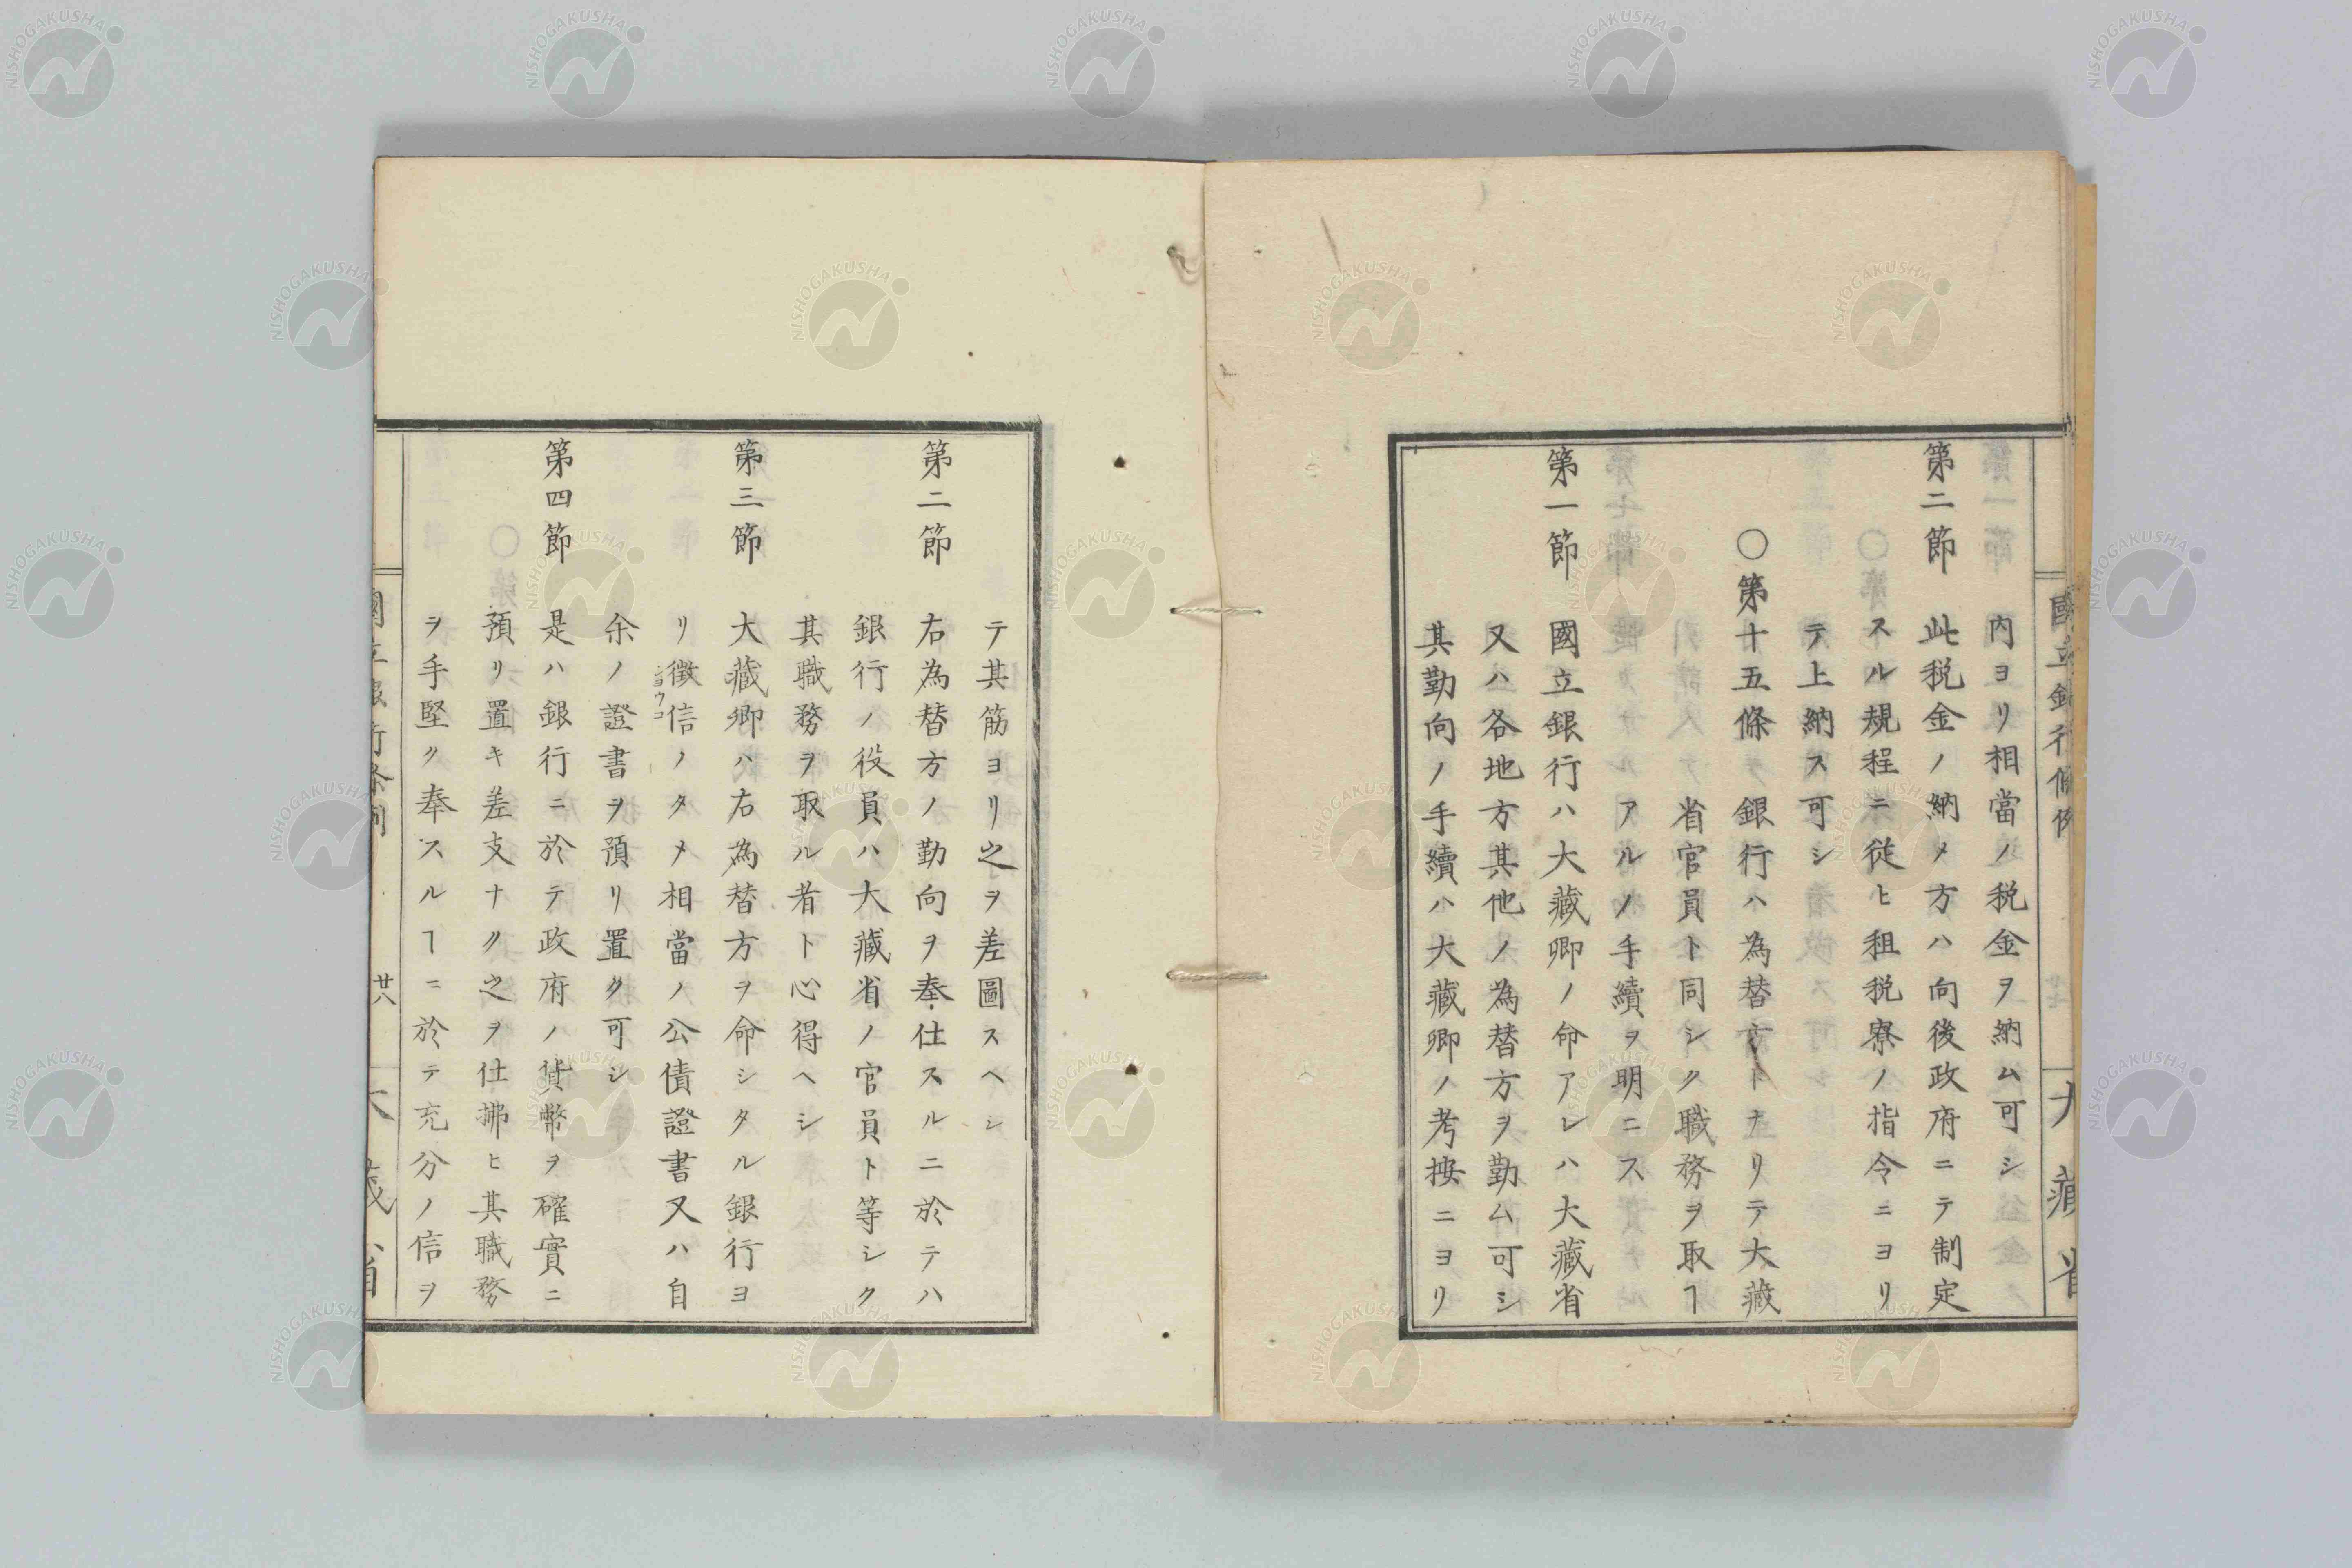 内ヨリ相當ノ税金ヲ納ム可シ
第二節 此税金ノ納メ方ハ向後政府ニテ制定
スル規程ニ従ヒ租税寮ノ指令ニヨリ
テ上納ス可シ
〇第十五條 銀行ハ為替方トナリテ大藏
省官員ト同シク職務ヲ取ヿ
アルノ手續ヲ明ニス
第一節 國立銀行ハ大藏卿ノ命アレハ大藏省
又ハ各地方其他ノ為替方ヲ勤ム可シ
其勤向ノ手續ハ大藏卿ノ考按ニヨリ
テ其筋ヨリ之ヲ差圖スヘシ
第二節 右為替方ノ勤向ヲ奉仕スルニ於テハ
銀行ノ役員ハ大藏省ノ官員ト等シク
其職務ヲ取ル者ト心得ヘシ
第三節 大藏卿ハ右為替方ヲ命シタル銀行ヨ
リ徴信ノタメ相當ノ公債證書又ハ自
余ノ證書ヲ預リ置ク可シ
第四節 是ハ銀行ニ於テ政府ノ貨幣ヲ確實ニ
預リ置キ差支ナク之ヲ仕拂ヒ其職務
ヲ手堅ク奉スルヿニ於テ充分ノ信ヲ
國立銀行條例 廿八 大藏省
國立銀行條例 大藏省
NISHOGAKUSHA